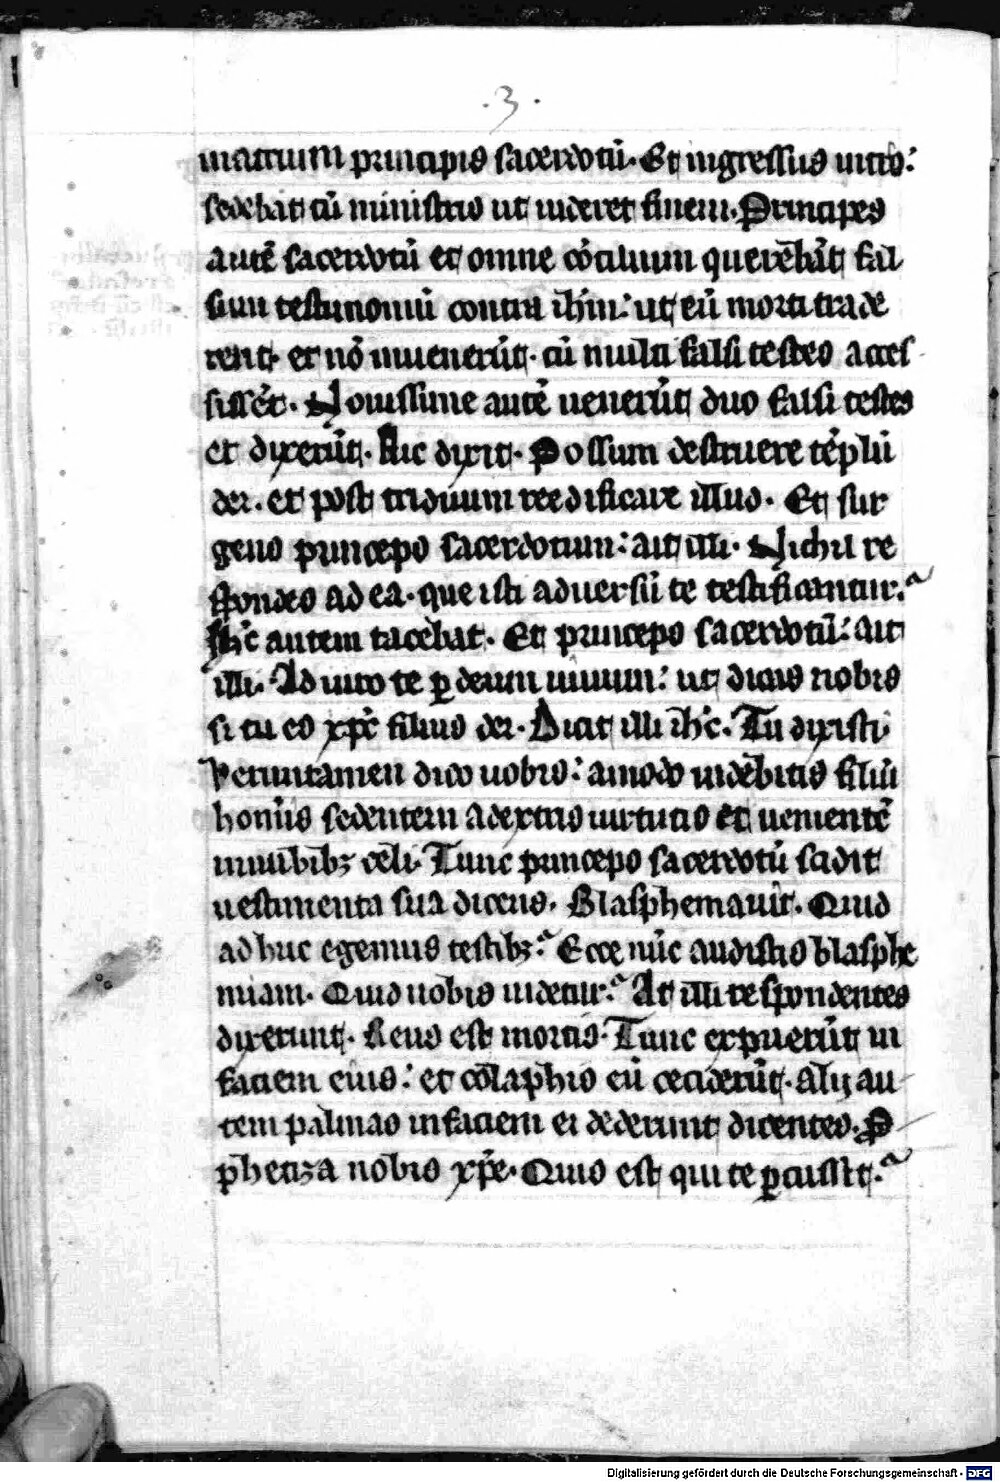 .3.
in atrium principis sacerdotū. Et ingressus intro:
sedebat cū ministris ut uideret finem. Principes
autē sacerdotū et omne cōcilium querebāt fal
sum testimoniū contra ihm: ut eū morti trade
rent. et nō inuenerūt. cū multi falsi testes acces
sissēt. Nouissime autē uenerūt duo falsi testes
et dixerūt. Hic dixit. Possum destruere tēplū
dei. et post triduum reedificare illud. Et sur
gens princeps sacerdotum: ait illi. Nichil re
spondes ad ea. que isti aduersū te testificantur?
Ihc autem tacebat. Et princeps sacerdotū: ait
illi. Adiuro te ꝑ deum uiuum: ut dicas nobis
si tu es xpc filius dei. Dicit illi ihc. Tu dixisti
Verumtamen dico uobis: amodo uidebitis filiū
hominis sedentem a dextris uirtutis et uenientē
in nubibꝫ celi. Tunc princeps sacerdotū scidit
uestimenta sua dicens. Blasphemauit. Quid
adhuc egemus testibꝫ? Ecce nūc audistis blasphe
miam. Quid uobis uidetur? At illi respondentes
dixerunt. Reus est mortis. Tunc expuerūt in
faciem eius: et colaphis eū ceciderūt. alij au-
tem palmas in faciem ei dederunt dicentes. P
phetiza nobis xpe. Quis est qui te ꝑcussit?
Digitalisierung gefördert durch die Deutsche Forschungsgemeinschaft - DFG